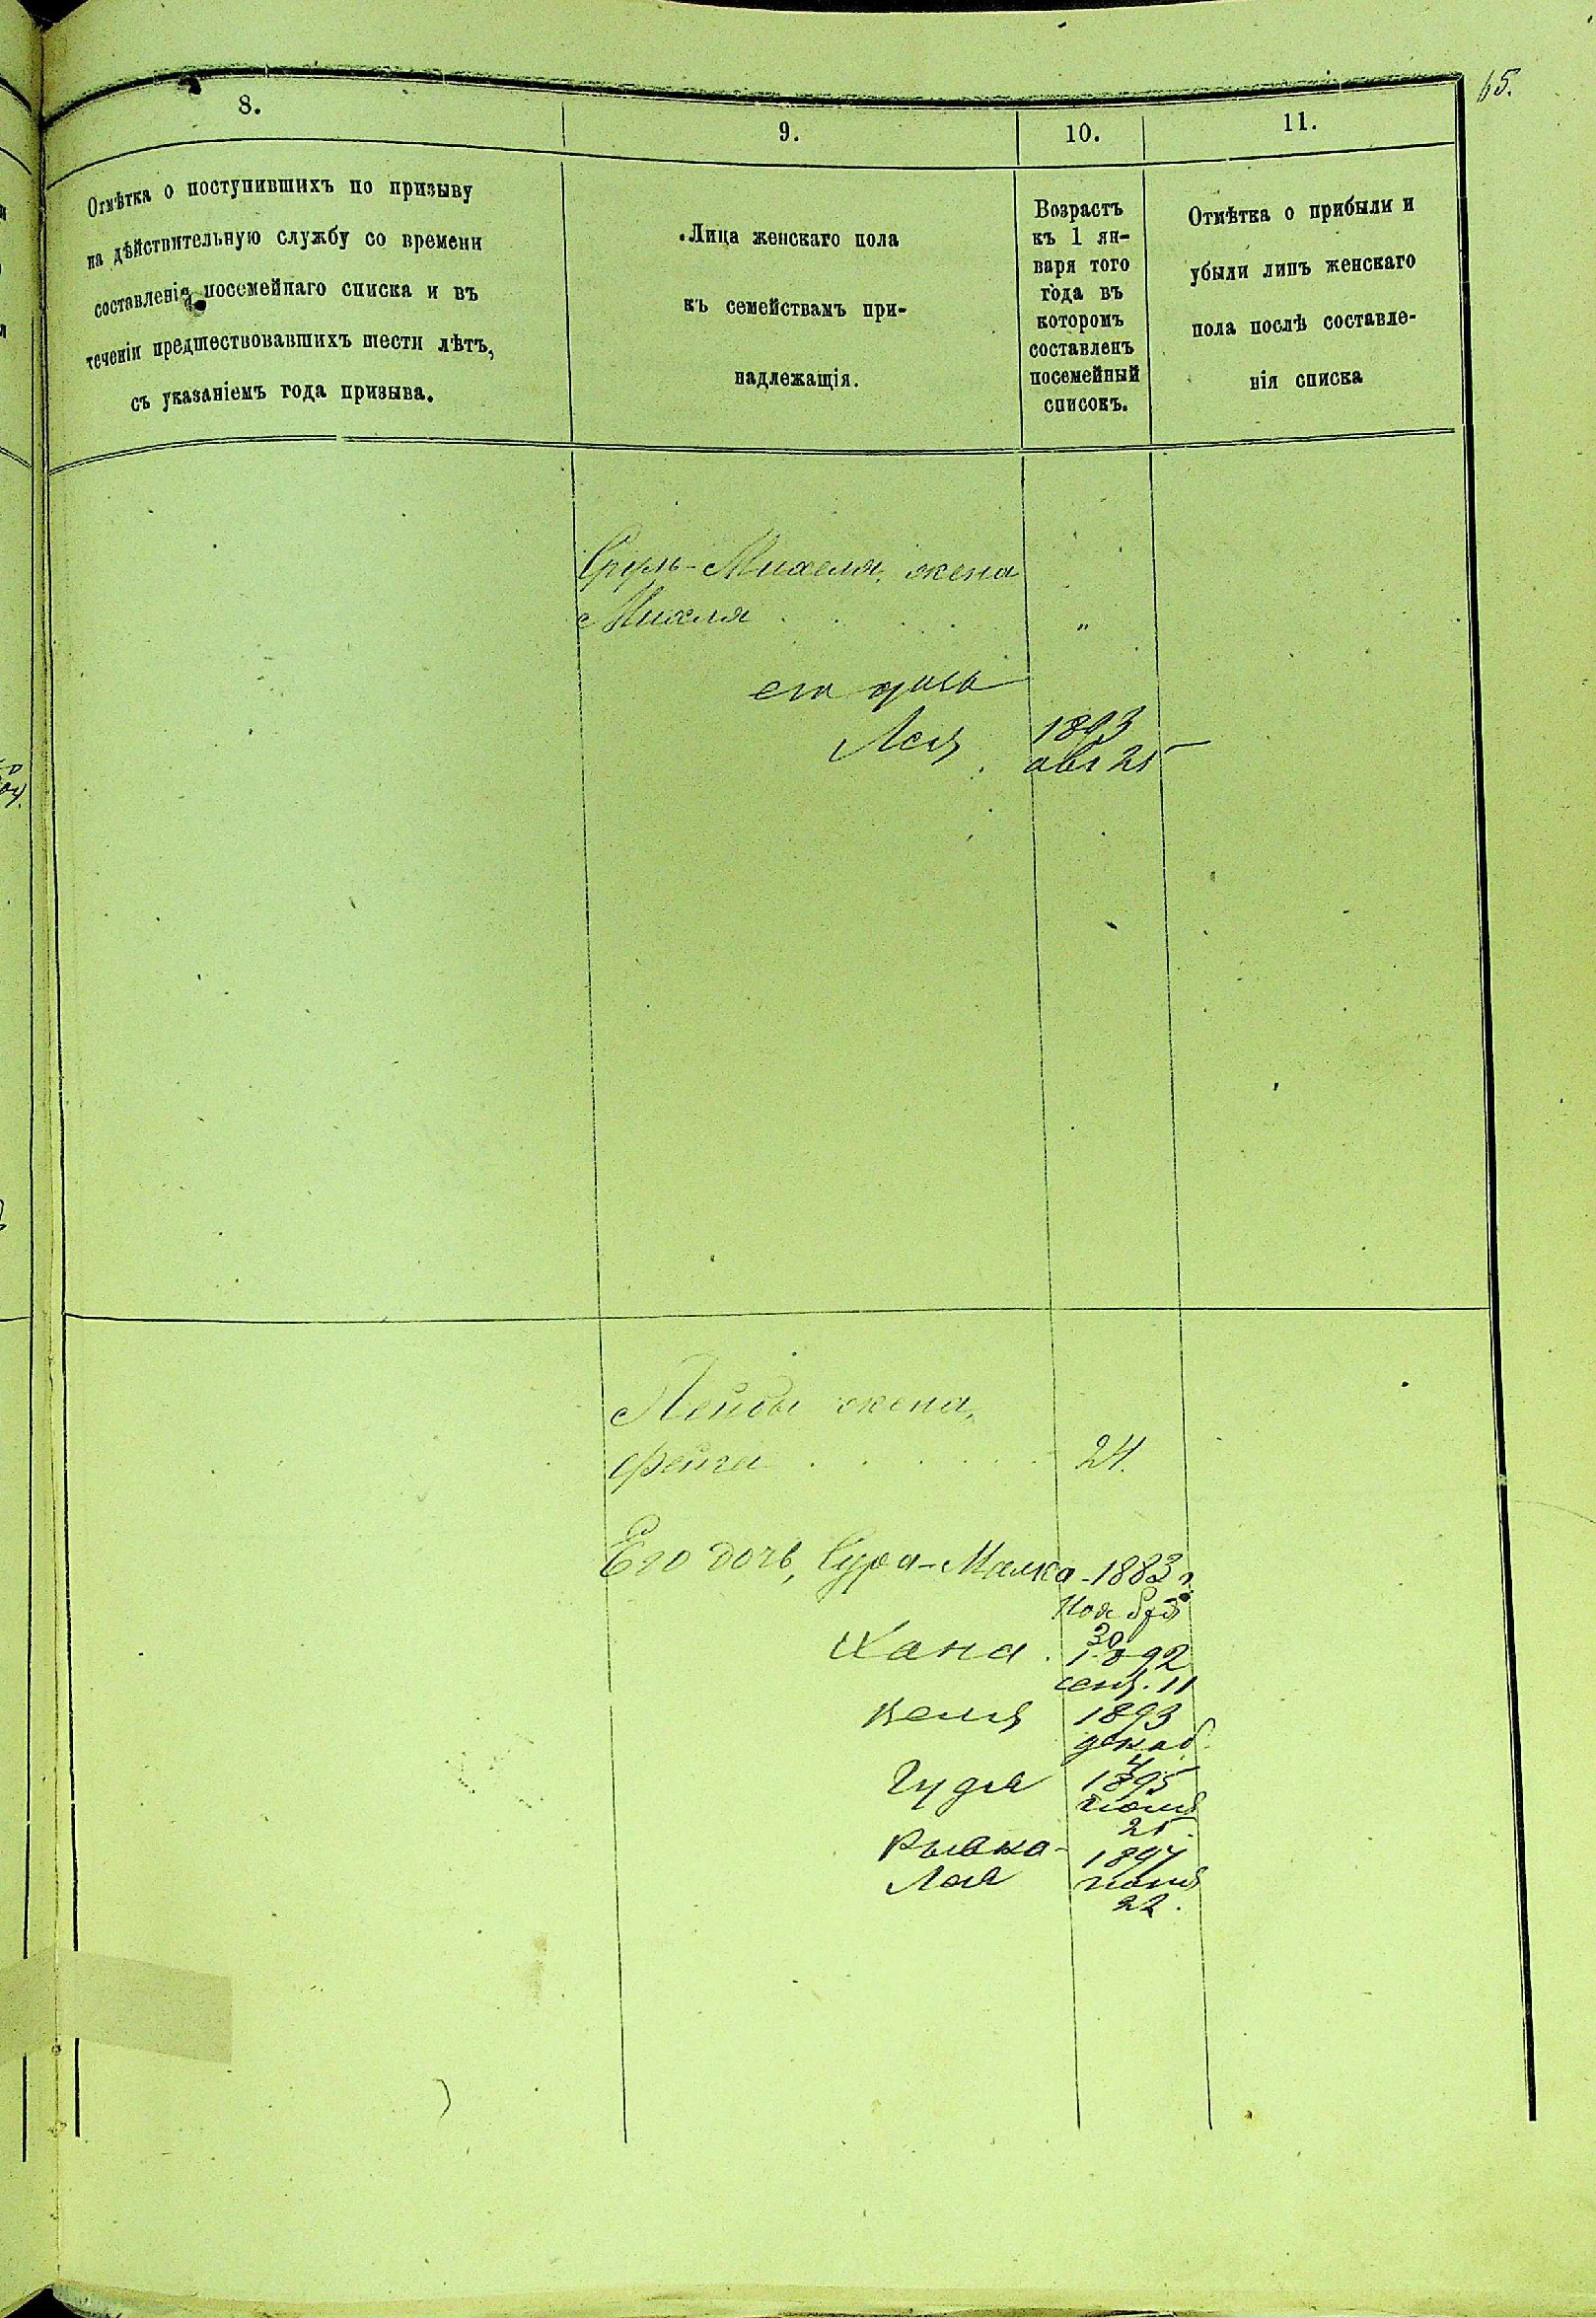 65.
8.
9.
10.
11.
Отмѣтка о поступившихъ по призыву
на дѣйствительную службу со времени
составленія посемейнаго списка и въ
теченіи предшествовавшихъ шести лѣтъ,
съ указаніемъ года призыва.
Лица женскаго пола
къ семействамъ при-
надлежащія.
Возрастъ
къ 1 ян-
варя того
года въ
которомъ
составленъ
посемейный
списокъ.
Отмѣтка о прибыли и
убыли лицъ женскаго
пола послѣ составле-
нія списка
Сруль-Михеля, жена
Михля . . . . "
его
1893
авг 25
Лейбы жена,
Фейга . . . . . . 24.
Его дочь, Сура-Малка - 1883 г.
Ноября
30
Хана . 1892
сент. 11
1893
декаб
4
Гудя 1895
июня
25.
Рывка- 1897
Лея июня
22.